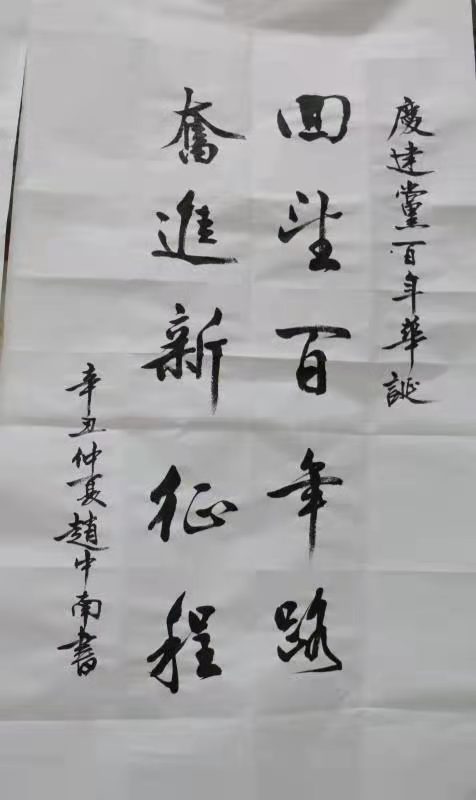 慶建黨百年華誕
回望百年路
奮進新征程
辛丑仲夏趙中南書